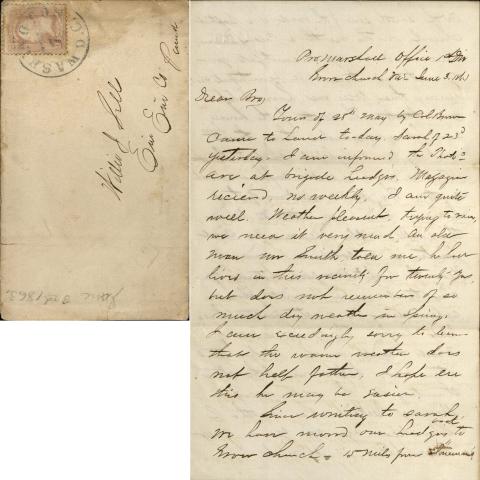 WASH
Willie J Sell
Erie Erie Co Penna
June 3d, 1863.
Pro Marshall Office 1st Div
June 3, 1863
Dear Bro,
Yours of 28th May by Col Brown
Came to hand to-day. Sarah's of 23d
yesterday. I am informed the Photos
are at brigade Hedqrs. Magazine
recieved, no weekly. I am quite
well. Weather pleasent, trying to rain,
we need it very much. An older
man now Smith told me he has
lived in this vicinity for twenty yrs,
but does not remember of so
much dry weather in Spring.
I am exceedingly sorry to learn
that the warm weather does
not help father, I hope ere
this he may be easier.
Since writing to Sarah,
we have moved our Hedqrs to
church. 5 miles from